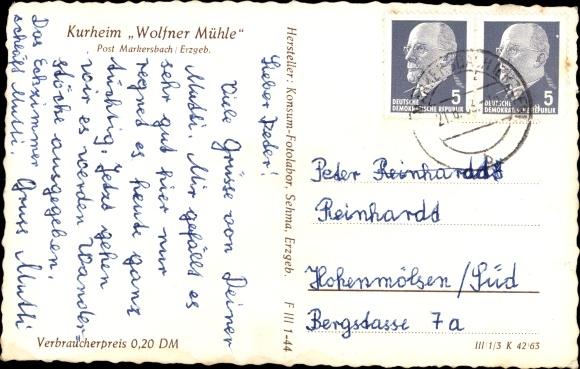 Kurheim „Wolfner Mühle“
Post Markersbach / Erzgeb.
Lieber Peter!
Viele Grüsse von Deiner
Mutti. Mir gefällt es
sehr gut hier nur
regnet es heute ganz
tüchtig. Jetzt gehen
wir es werden Wander-
stöcke ausgegeben.
Das Eckzimmer
schläft Mutti. Gruss Mutti
Verbraucherpreis 0,20 DM
Hersteller: Konsum-Fotolabor, Sehma, Erzgeb. F III 1-44
DEUTSCHE DEMOKRATISCHE REPUBLIK 5
DEUTSCHE DEMOKRATISCHE REPUBLIK 5
Peter Reinhardt
Reinhardt
Hohenmölsen/Süd
Bergstasse 7a
III/1/3 K 42/63